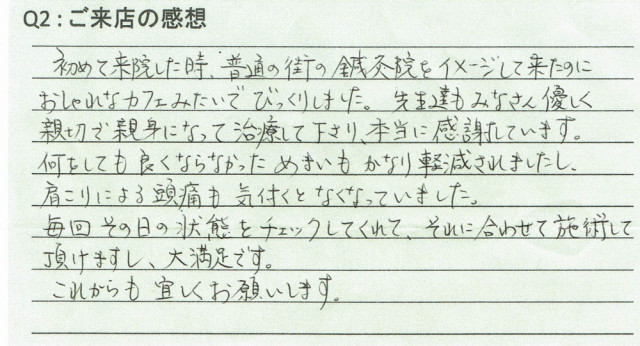 Q2：ご来店の感想
初めて来院した時、普通の街の鍼灸院をイメージして来たのに
おしゃれなカフェみたいでびっくりしました。先生達もみなさん優しく
親切で親身になって治療して下さり、本当に感謝しています。
何をしても良くならなかっためまいもかなり軽減されましたし、
肩こりによる頭痛も気付くとなくなっていました。
毎回その日の状態をチェックしてくれて、それに合わせて施術して
頂けますし、大満足です。
これからも宜しくお願いします。